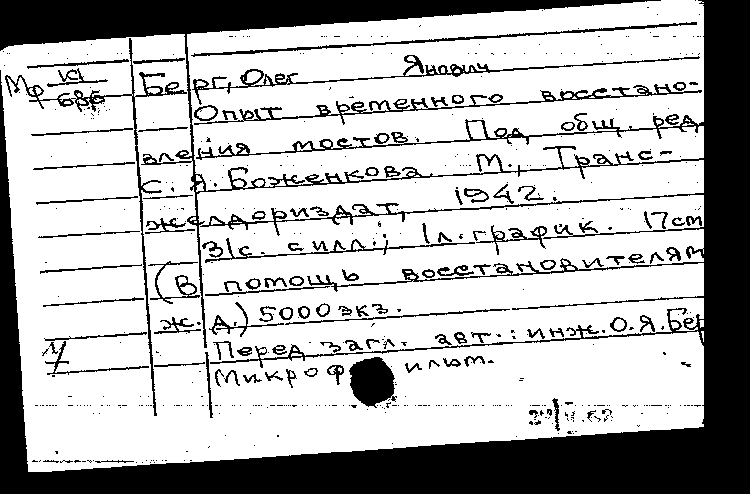 Мф VI
686
Берг, Олег Янович
Опыт временного восстано-
вления мостов. Под общ. ред.
С. Я. Боженкова. М., Транс-
желдориздат, 1942.
31с. с илл.; 1л. график. 17см
(В помощь восстановителям
ж. д.) 5000 экз.
Перед загл. авт.: инж. О. Я. Бер
Микроф ильм.